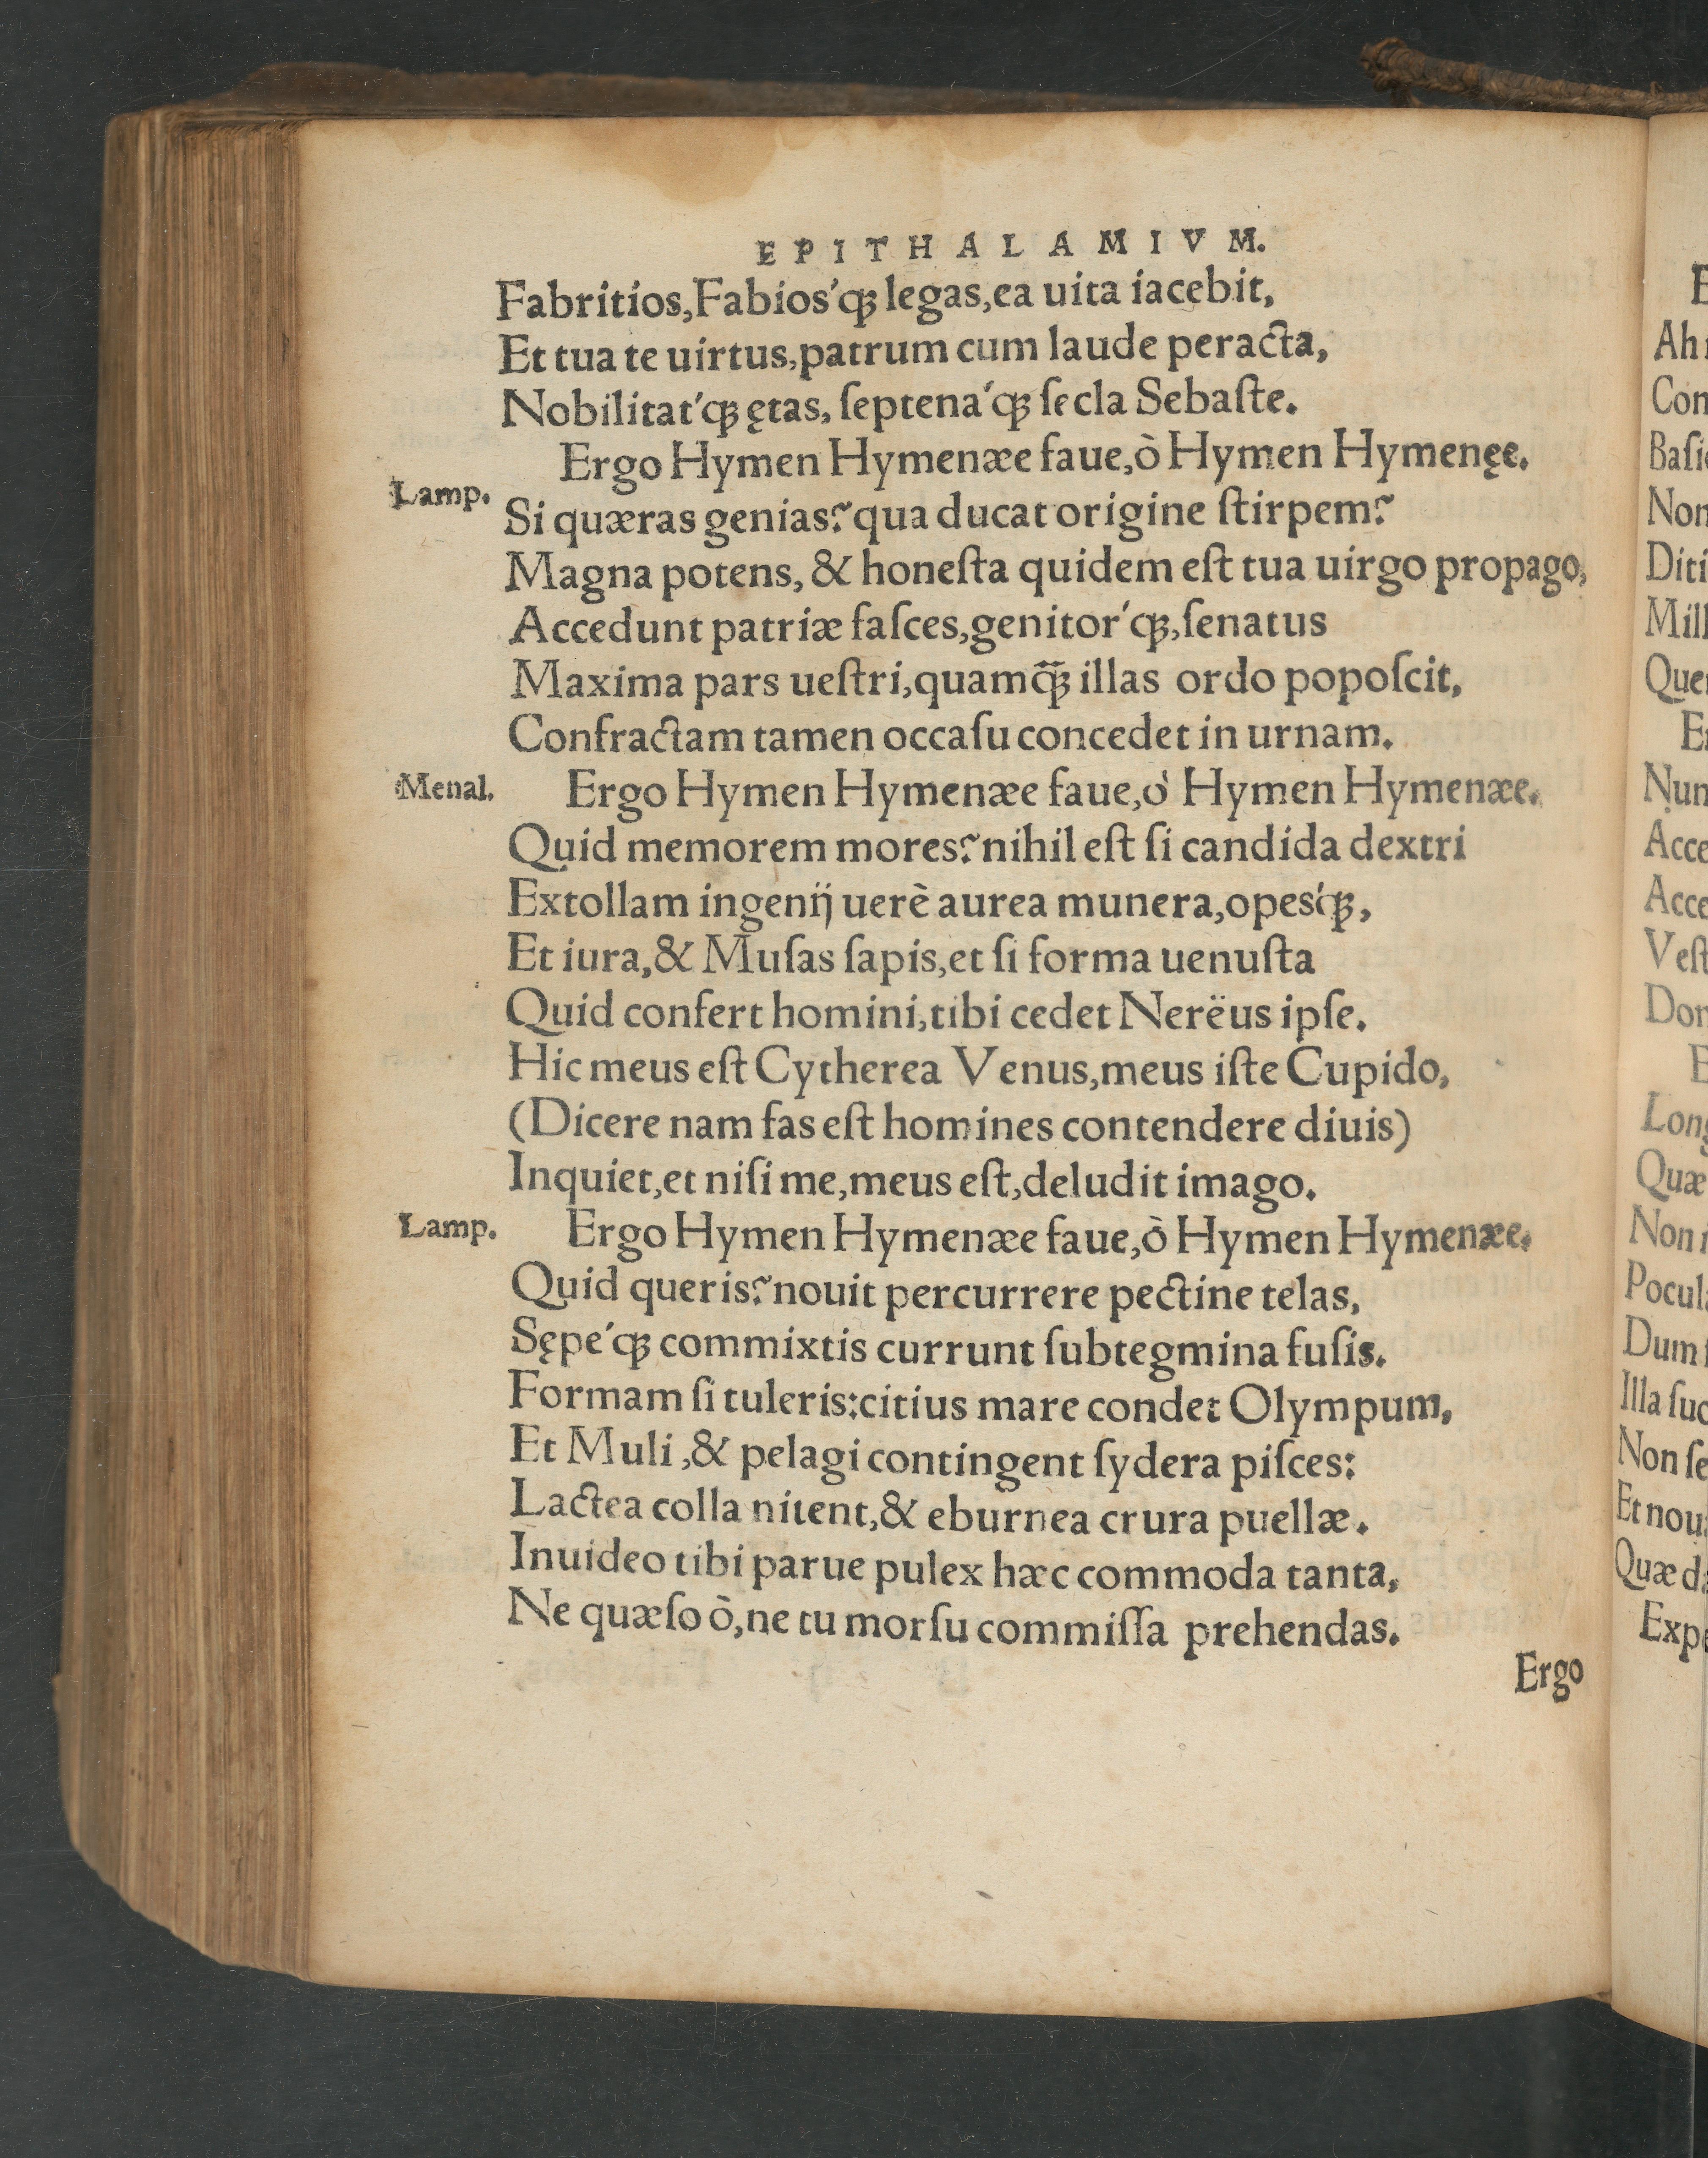 EPITHALAMIVM.
Fabritios,Fabios'qꝫ legas,ea uita iacebit,
Et tua te uirtus,patrum cum laude peracta,
Nobilitat'qꝫ ętas, ſeptena'qꝫ ſecla Sebaſte.
Ergo Hymen Hymenæe faue,ò Hymen Hymenęe.
Lamp.
Si quæras genias? qua ducat origine ſtirpem?
Magna potens, & honeſta quidem eſt tua uirgo propago,
Accedunt patriæ faſces,genitor'qꝫ,ſenatus
Maxima pars ueſtri,quamq̃ꝫ illas ordo popoſcit,
Confractam tamen occaſu concedet in urnam.
Menal. Ergo Hymen Hymenæe faue,ò Hymen Hymenæe.
Quid memorem mores? nihil eſt ſi candida dextri
Extollam ingenij uerè aurea munera,opes'qꝫ,
Et iura,& Muſas ſapis,et ſi forma uenuſta
Quid confert homini,tibi cedet Nerëus ipſe.
Hic meus eſt Cytherea Venus,meus iſte Cupido,
(Dicere nam fas eſt homines contendere diuis)
Inquiet,et niſi me,meus eſt,deludit imago.
Lamp. Ergo Hymen Hymenæe faue,ò Hymen Hymenæe.
Quid queris? nouit percurrere pectine telas,
Sępe'qꝫ commixtis currunt ſubtegmina fuſis.
Formam ſi tuleris:citius mare condet Olympum,
Et Muli,& pelagi contingent ſydera piſces:
Lactea colla nitent,& eburnea crura puellæ.
Inuideo tibi parue pulex hæc commoda tanta,
Ne quæſo ò,ne tu morſu commiſſa prehendas.
Ergo